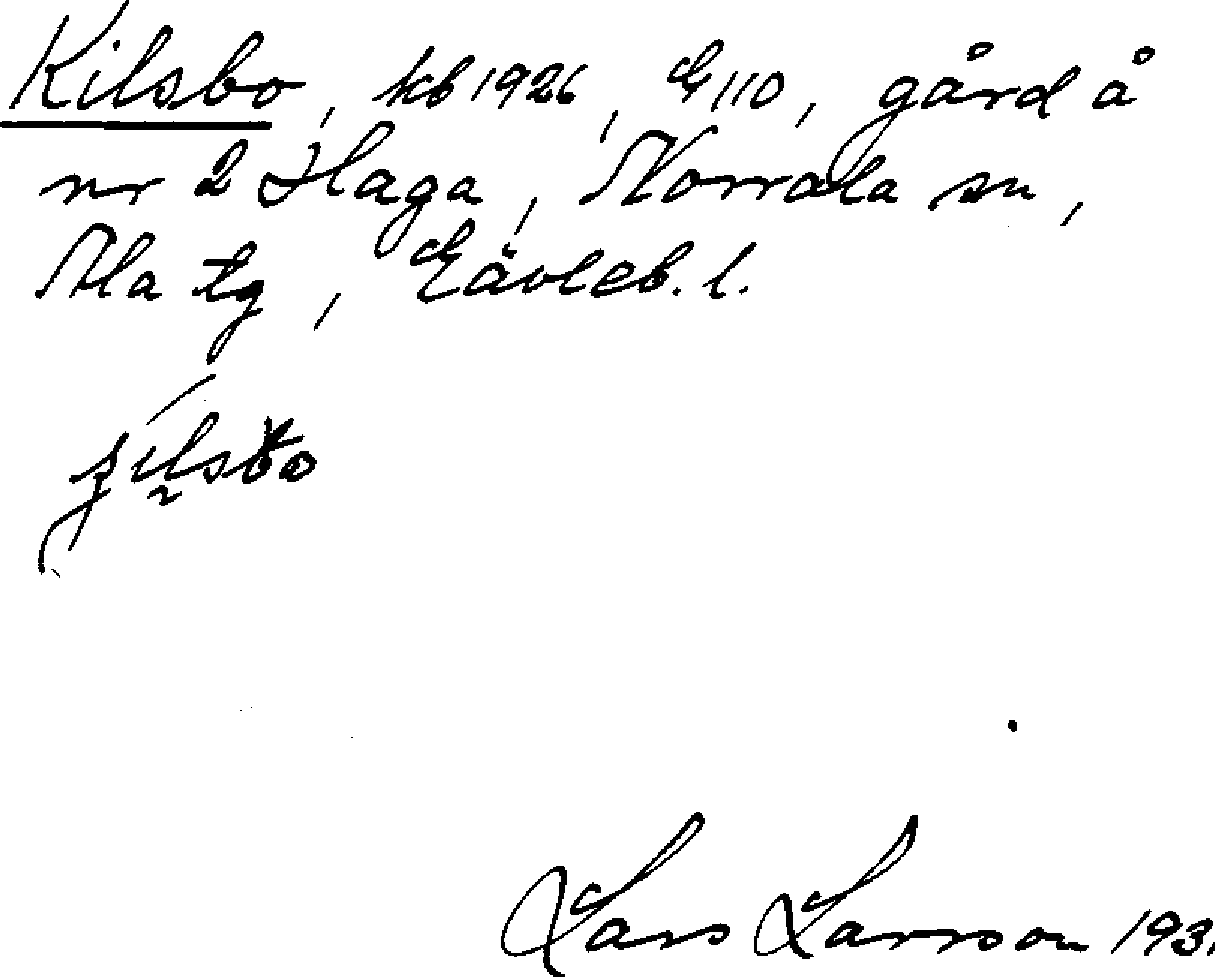 Kilsbo, kb 1926, G 110, gård å
nr 2 Haga, Norrala sn,
Ala tg, Gävleb. l.
Lars Larsson 193